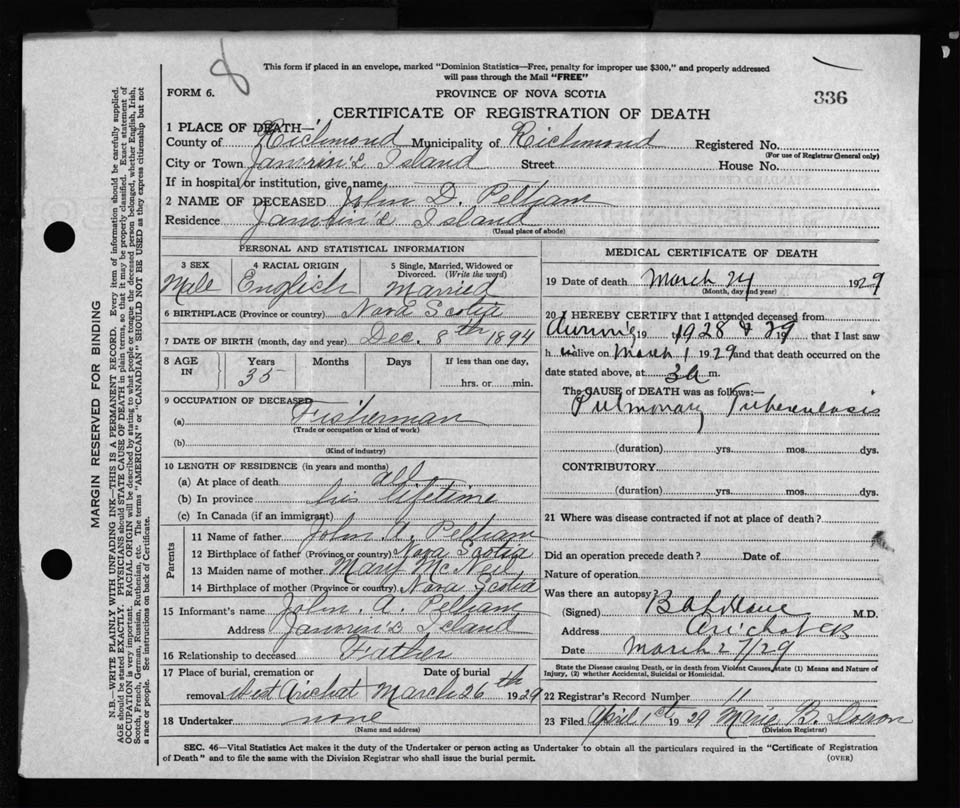 8
This form if placed in an envelope, marked "Dominion Statistics—Free, penalty for improper use $300," and properly addressed
will pass through the Mail "FREE"
FORM 6.
PROVINCE OF NOVA SCOTIA
336
CERTIFICATE OF REGISTRATION OF DEATH
1 PLACE OF DEATH—
County of Richmond Municipality of Richmond Registered No.
(For use of Registrar General only)
City or Town Janvrin's Island Street House No.
If in hospital or institution, give name
2 NAME OF DECEASED John D. Pelham
Residence Janvrin's Island
(Usual place of abode)
PERSONAL AND STATISTICAL INFORMATION
3 SEX 4 RACIAL ORIGIN 5 Single, Married, Widowed or
Divorced. (Write the word)
Male English Married
6 BIRTHPLACE (Province or country) Nova Scotia
7 DATE OF BIRTH (month, day and year) Dec. 8th 1894
8 AGE IN Years Months Days If less than one day,
35 hrs. or min.
9 OCCUPATION OF DECEASED
(a) Fisherman
(Trade or occupation or kind of work)
(b)
(Kind of industry)
10 LENGTH OF RESIDENCE (in years and months)
(a) At place of death all
(b) In province his lifetime
(c) In Canada (if an immigrant)
Parents
11 Name of father John A. Pelham
12 Birthplace of father (Province or country) Nova Scotia
13 Maiden name of mother Mary McNeil
14 Birthplace of mother (Province or country) Nova Scotia
15 Informant's name John. A. Pelham
Address Janvrin's Island
16 Relationship to deceased Father
17 Place of burial, cremation or Date of burial
removal West Arichat March 26th 1929
18 Undertaker none
(Name and address)
MEDICAL CERTIFICATE OF DEATH
19 Date of death March 24 1929
(Month, day and year)
20 I HEREBY CERTIFY that I attended deceased from
during 19 1928 & 29 that I last saw
h im alive on March 1 1929 and that death occurred on the
date stated above, at 3a m.
The CAUSE OF DEATH was as follows:—
Pulmonary Tuberculosis
(duration) yrs. mos. dys.
CONTRIBUTORY
(duration) yrs. mos. dys.
21 Where was disease contracted if not at place of death?
Did an operation precede death? Date of
Nature of operation
Was there an autopsy?
(Signed) M.D.
Address Arichat CB
Date March 27/29
State the Disease causing Death, or in death from Violent Causes, state (1) Means and Nature of
Injury, (2) whether Accidental, Suicidal or Homicidal.
22 Registrar's Record Number 11
23 Filed April 1st 1929 Marie B.
(Division Registrar)
SEC. 46—Vital Statistics Act makes it the duty of the Undertaker or person acting as Undertaker to obtain all the particulars required in the "Certificate of Registration
of Death" and to file the same with the Division Registrar who shall issue the burial permit.
(OVER)
MARGIN RESERVED FOR BINDING
N.B.—WRITE PLAINLY WITH UNFADING INK—THIS IS A PERMANENT RECORD. Every item of information should be carefully supplied.
AGE should be stated EXACTLY. PHYSICIANS should STATE CAUSE OF DEATH in plain terms, so that it may be properly classified. Exact statement of
OCCUPATION is very important. RACIAL ORIGIN will be described by stating to what people or tongue the deceased person belonged, whether English, Irish,
Scotch, French, German, Russian, Ruthenian, etc. The terms "AMERICAN" or "CANADIAN" SHOULD NOT BE USED as they express citizenship but not
a race or people. See instructions on back of Certificate.